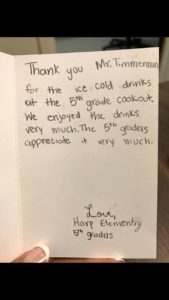 Thank you Mr. Timmerman
for the ice cold drinks
at the 5th grade cookout.
We enjoyed the drinks
very much. The 5th graders
appreciate it very much.
Love,
Harp Elementry
5th graders